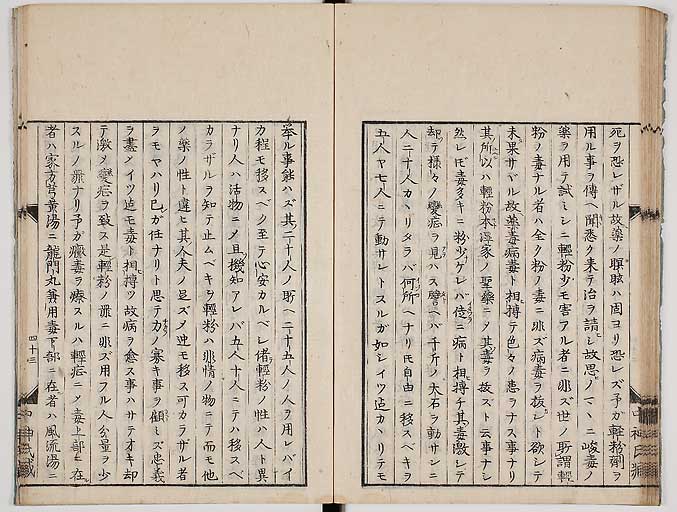 死ヲ恐レザル故薬ノ瞑眩ハ固ヨリ恐レズ予ガ軽粉剤ヲ
用ル事ヲ傳ヘ聞悉ク来テ治ヲ請レ故思ノマヽニ峻毒ノ
薬ヲ用テ試ミシニ軽粉少モ害アル者ニ非ズ世ノ所謂軽
粉ノ毒ナル者ハ全ク粉ノ毒ニ非ズ病毒ヲ抜レト欲シテ
未果サヾル故薬毒病毒ト相搏テ色々ノ患ヲナス事ナリ
其所以ハ軽粉本瘍家ノ聖薬ニメ其毒ヲ故ズト云事ナシ
然レ𪜈毒多キニ粉少ケレバ侍ニ病ト相搏チ其毒激レテ
却テ様々ノ變症ヲ見ハス譬ヘバ千斤ノ大石ヲ動サレニ
人二十人カヽリタラバ何所ヘナリ𪜈自由ニ移スベキヲ
五人ヤ七人ニテ動サレトスルガ如シイツ迠カヽリテモ
挙ル事能ハズ其二十人ノ所ヘ二十五人ノ人ヲ用レバイ
カ程モ移スベク至テ心安カルベレ偖軽粉ノ性ハ人ト異
ナリ人ハ活物ニメ且機知アレバ五人十人ニテハ移スベ
カラザルヲ知テ止ムベキヲ軽粉ハ非情ノ物ニテ而モ他
ノ薬ノ性ト違ヒ其人夫ノ足ズメ迚モ移ス可カラザル者
ヲモヤハリ己ガ任ナリト思テ力ノ寡キ事ヲ顧ミズ忠義
ヲ盡メイツ迠モ毒ト相搏ツ故病ヲ愈ス事ハサテオキ却
テ激メ變症ヲ致ス是軽粉ノ罪ニ非ズ用フル人分量ヲ少
スルノ罪ナリ予ガ黴毒ヲ療スルハ軽症ニメ毒上部ニ在
者ハ家方芎黄湯ニ龍門丸兼用毒下部ニ在者ハ風流湯ニ
四十三
中神氏蔵
中神氏蔵